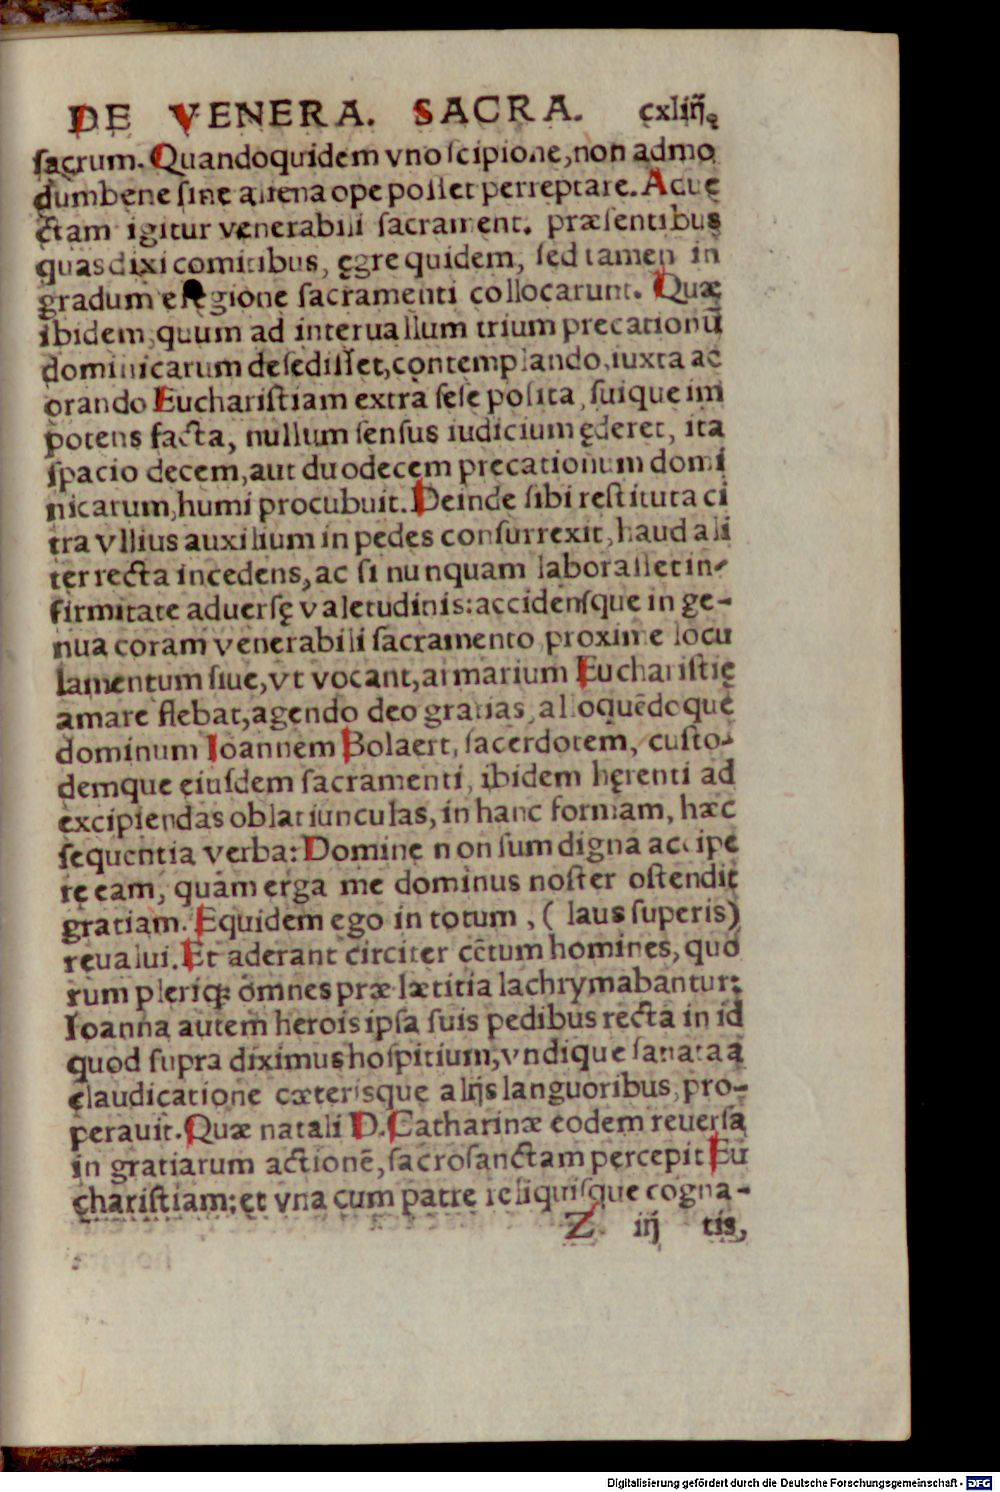 DE VENERA. SACRA. cxliiij.
sacrum. Quandoquidem vno scipione, non admo
dumbene sine aliena ope posset perreptare. Adue
ctam igitur venerabili sacrament. præsentibus
quas dixi comitibus, ęgre quidem, sed tamen in
gradum e regione sacramenti collocarunt. Quæ
ibidem, quum ad interuallum trium precationū
dominicarum desedisset, contemplando, iuxta ac
orando Eucharistiam extra sese posita, suique im
potens facta, nullum sensus iudicium ęderet, ita
spacio decem, aut duodecem precationum domi
nicarum, humi procubuit. Deinde sibi restituta ci
tra vllius auxilium in pedes consurrexit, haud ali
ter recta incedens, ac si nunquam laborasset in-
firmitate aduersę valetudinis: accidensque in ge-
nua coram venerabili sacramento proxime locu
lamentum siue, vt vocant, armarium Eucharistię
amare flebat, agendo deo gratias, alloquēdoque
dominum Ioannem Bolaert, sacerdotem, custo-
demque eiusdem sacramenti, ibidem hęrenti ad
excipiendas oblatiunculas, in hanc formam, hæc
sequentia verba: Domine non sum digna accipe
re eam, quàm erga me dominus noster ostendit
gratiam. Equidem ego in totum, ( laus superis)
reualui. Et aderant circiter cētum homines, quo
rum pleriq; omnes præ lætitia lachrymabantur:
Ioanna autem herois ipsa suis pedibus recta in id
quod supra diximus hospitium, vndique sanata a
claudicatione cæterisque alijs languoribus, pro-
perauit. Quæ natali D. Catharinæ eodem reuersa
in gratiarum actionē, sacrosanctam percepit Eu
charistiam: et vna cum patre reliquisque cogna-
Z iij tis,
Digitalisierung gefördert durch die Deutsche Forschungsgemeinschaft - DFG